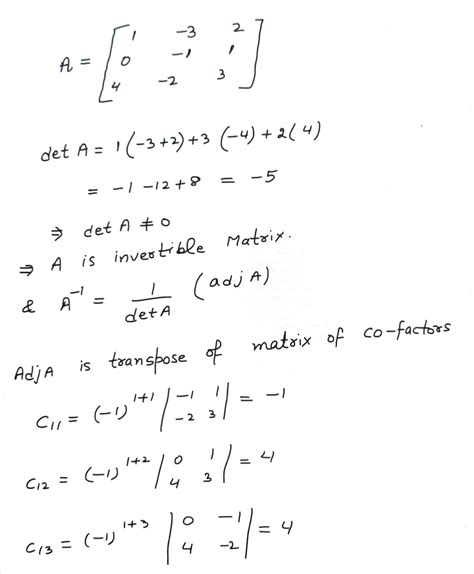 A = [ 1 -3 2
0 -1 1
4 -2 3 ]
det A = 1(-3+2)+3(-4)+2(4)
= -1 -12+8 = -5
⇒ det A ≠ 0
⇒ A is invertible Matrix.
& A⁻¹ = 1/detA (adj A)
AdjA is transpose of matrix of co-factors
C11 = (-1)^1+1 |-1 1; -2 3| = -1
C12 = (-1)^1+2 |0 1; 4 3| = 4
C13 = (-1)^1+3 |0 -1; 4 -2| = 4